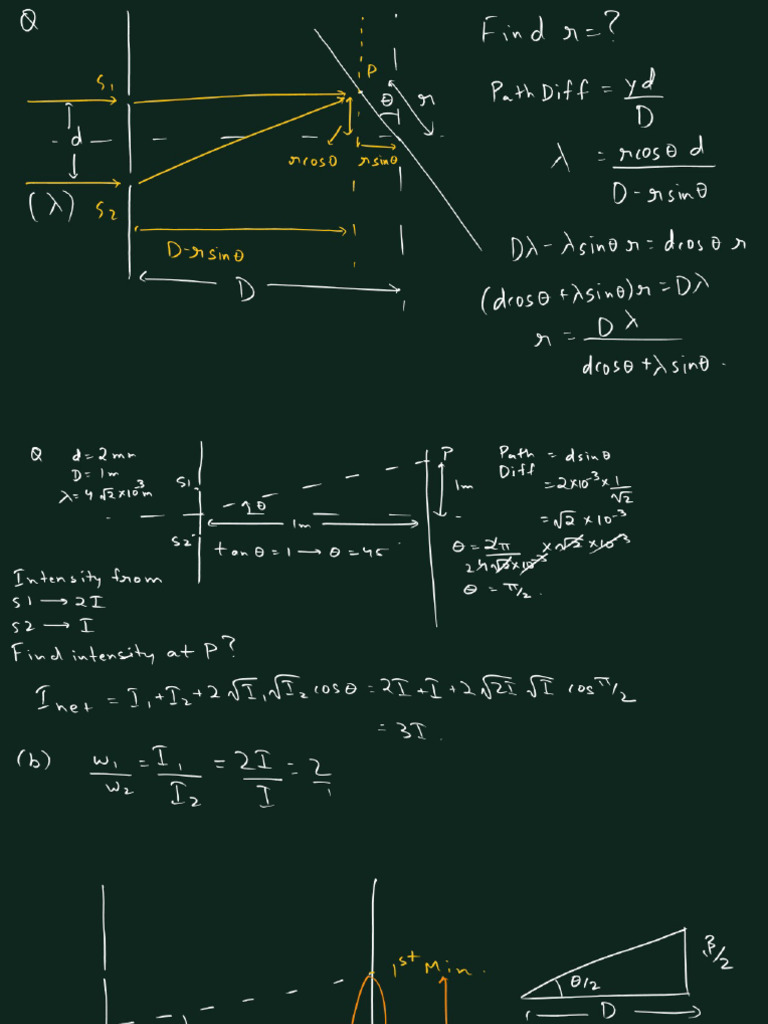 Q
Find r = ?
S1
P
θ
r
Path Diff = yd/D
d
rcosθ
rsinθ
λ = rcosθ d / D-rsinθ
(λ)
S2
D-rsinθ
Dλ - λsinθ r = dcosθ r
D
(dcosθ + λsinθ)r = Dλ
r = Dλ / dcosθ + λsinθ
Q
d = 2mm
D = 1m
λ = 4√2 × 10⁻³m
S1
S2
θ
1m
tanθ = 1 → θ = 45
P
1m
Path Diff = dsinθ
= 2×10⁻³ × 1/√2
= √2 × 10⁻³
θ = 2π / 24√2×10⁻³ × √2 × 10⁻³
θ = π/2.
Intensity from
S1 → 2I
S2 → I
Find intensity at P?
Inet = I1 + I2 + 2√I1 √I2 cosθ = 2I + I + 2√2I √I cos π/2
= 3I.
(b) w1/w2 = I1/I2 = 2I/I = 2/1
1st Min.
θ/2
β/2
D